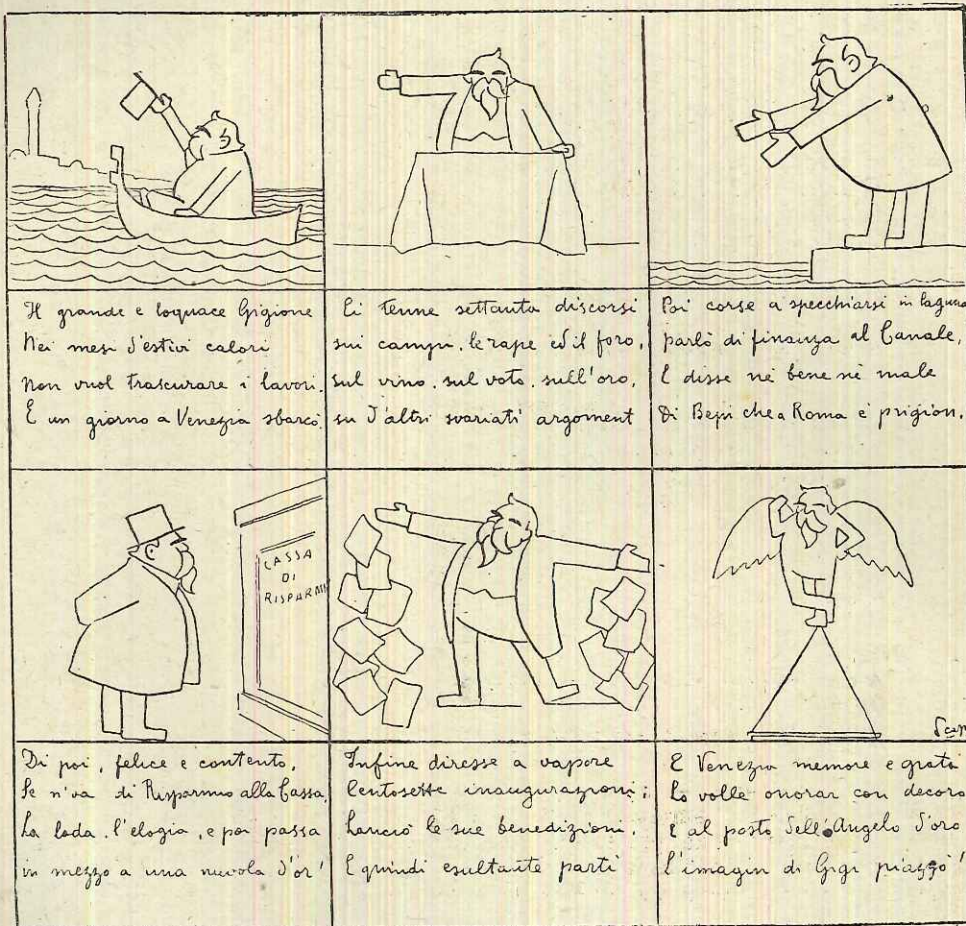 Il grande e loquace Gigione
Nei mesi d'estivi calori
Non vuol trascurare i lavori.
E un giorno a Venezia sbarcò.
Ci tenne settanta discorsi
sui campi, le rape ed il foro,
sul vino, sul voto, sull'oro,
su d'altri svariati argoment
Poi corse a specchiarsi in laguna
parlò di finanza al Canale,
E disse nè bene nè male
Di Bepi che a Roma è prigion.
CASSA
DI
RISPARM
Scarp
Di poi, felice e contento,
Se n'va di Risparmio alla Cassa,
La loda, l'elogia, e poi passa
in mezzo a una nuvola d'or!
Infine diresse a vapore
Centosette inaugurazioni;
Lanciò le sue benedizioni,
E quindi esultante partì
E Venezia memore e grata
Lo volle onorar con decoro
E al posto dell'Angelo d'oro
l'imagin di Gigi piazzò